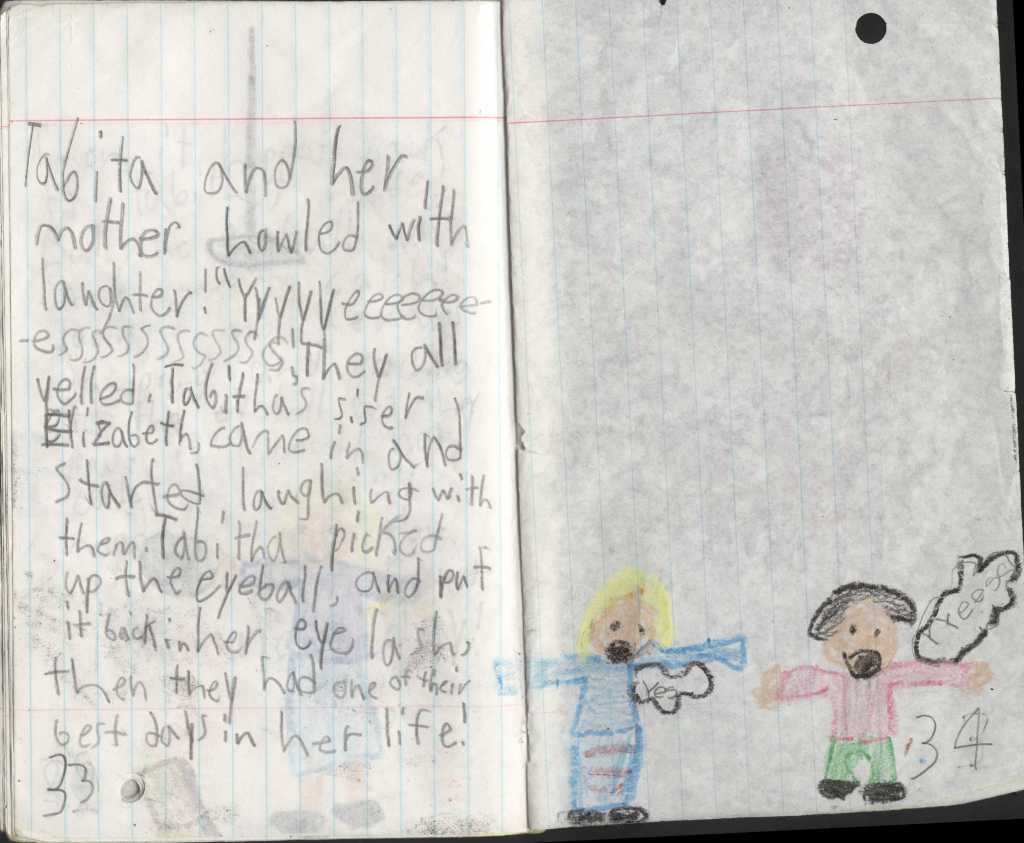 Tabita and her
mother howled with
laughter!"Yyyyyyeeeeeee-
-esssssssssssss!"They all
yelled. Tabitha's siser
Elizabeth, came in and
started laughing with
them. Tabitha picked
up the eyeball, and put
it back in her eye lash,
then they had one of their
best days in her life!
33
Yes
34